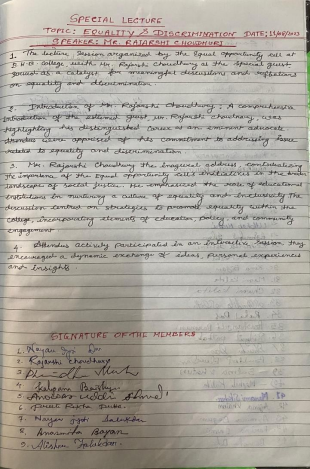 SPECIAL LECTURE
TOPIC: EQUALITY & DISCRIMINATION DATE; 13/05/2023
SPEAKER: MR. RAJARSHI CHOUDHURI
1. The lecture session organized by the Equal Opportunity cell at
B.H.B College with Mr Rajarshi Choudhury as the special guest
served as a catalyst for meaningful discussions and reflections
on equality and discrimination
2. Introduction of Mr. Rajarshi Choudhury: A comprehensive
Introduction of the esteemed guest, Mr Rajarshi choudhury, was
highlighting his distinguished career as an eminent advocate
Attendees were apprised of his commitment to addressing issues
related to equality and discrimination
Mr. Rajarshi Choudhury the Inaugural address contextualising
the importance of the Equal Opportunity cell's initiatives in the broader
landscape of social justice. He emphasized the role of educational
institutions in nurturing a culture of equality and inclusivity The
discussion centred on strategies to promote equality within the
college, incorporating elements of education, policy, and community
engagement
4. Attendees actively participated in an interactive session they
encouraged a dynamic exchange of ideas, personal experiences
and Insights
SIGNATURE OF THE MEMBERS
1.
2. Rajarshi Choudhury
3.
4. Kalpana
5.
6.
7. Nayan Jyoti
8.
9.